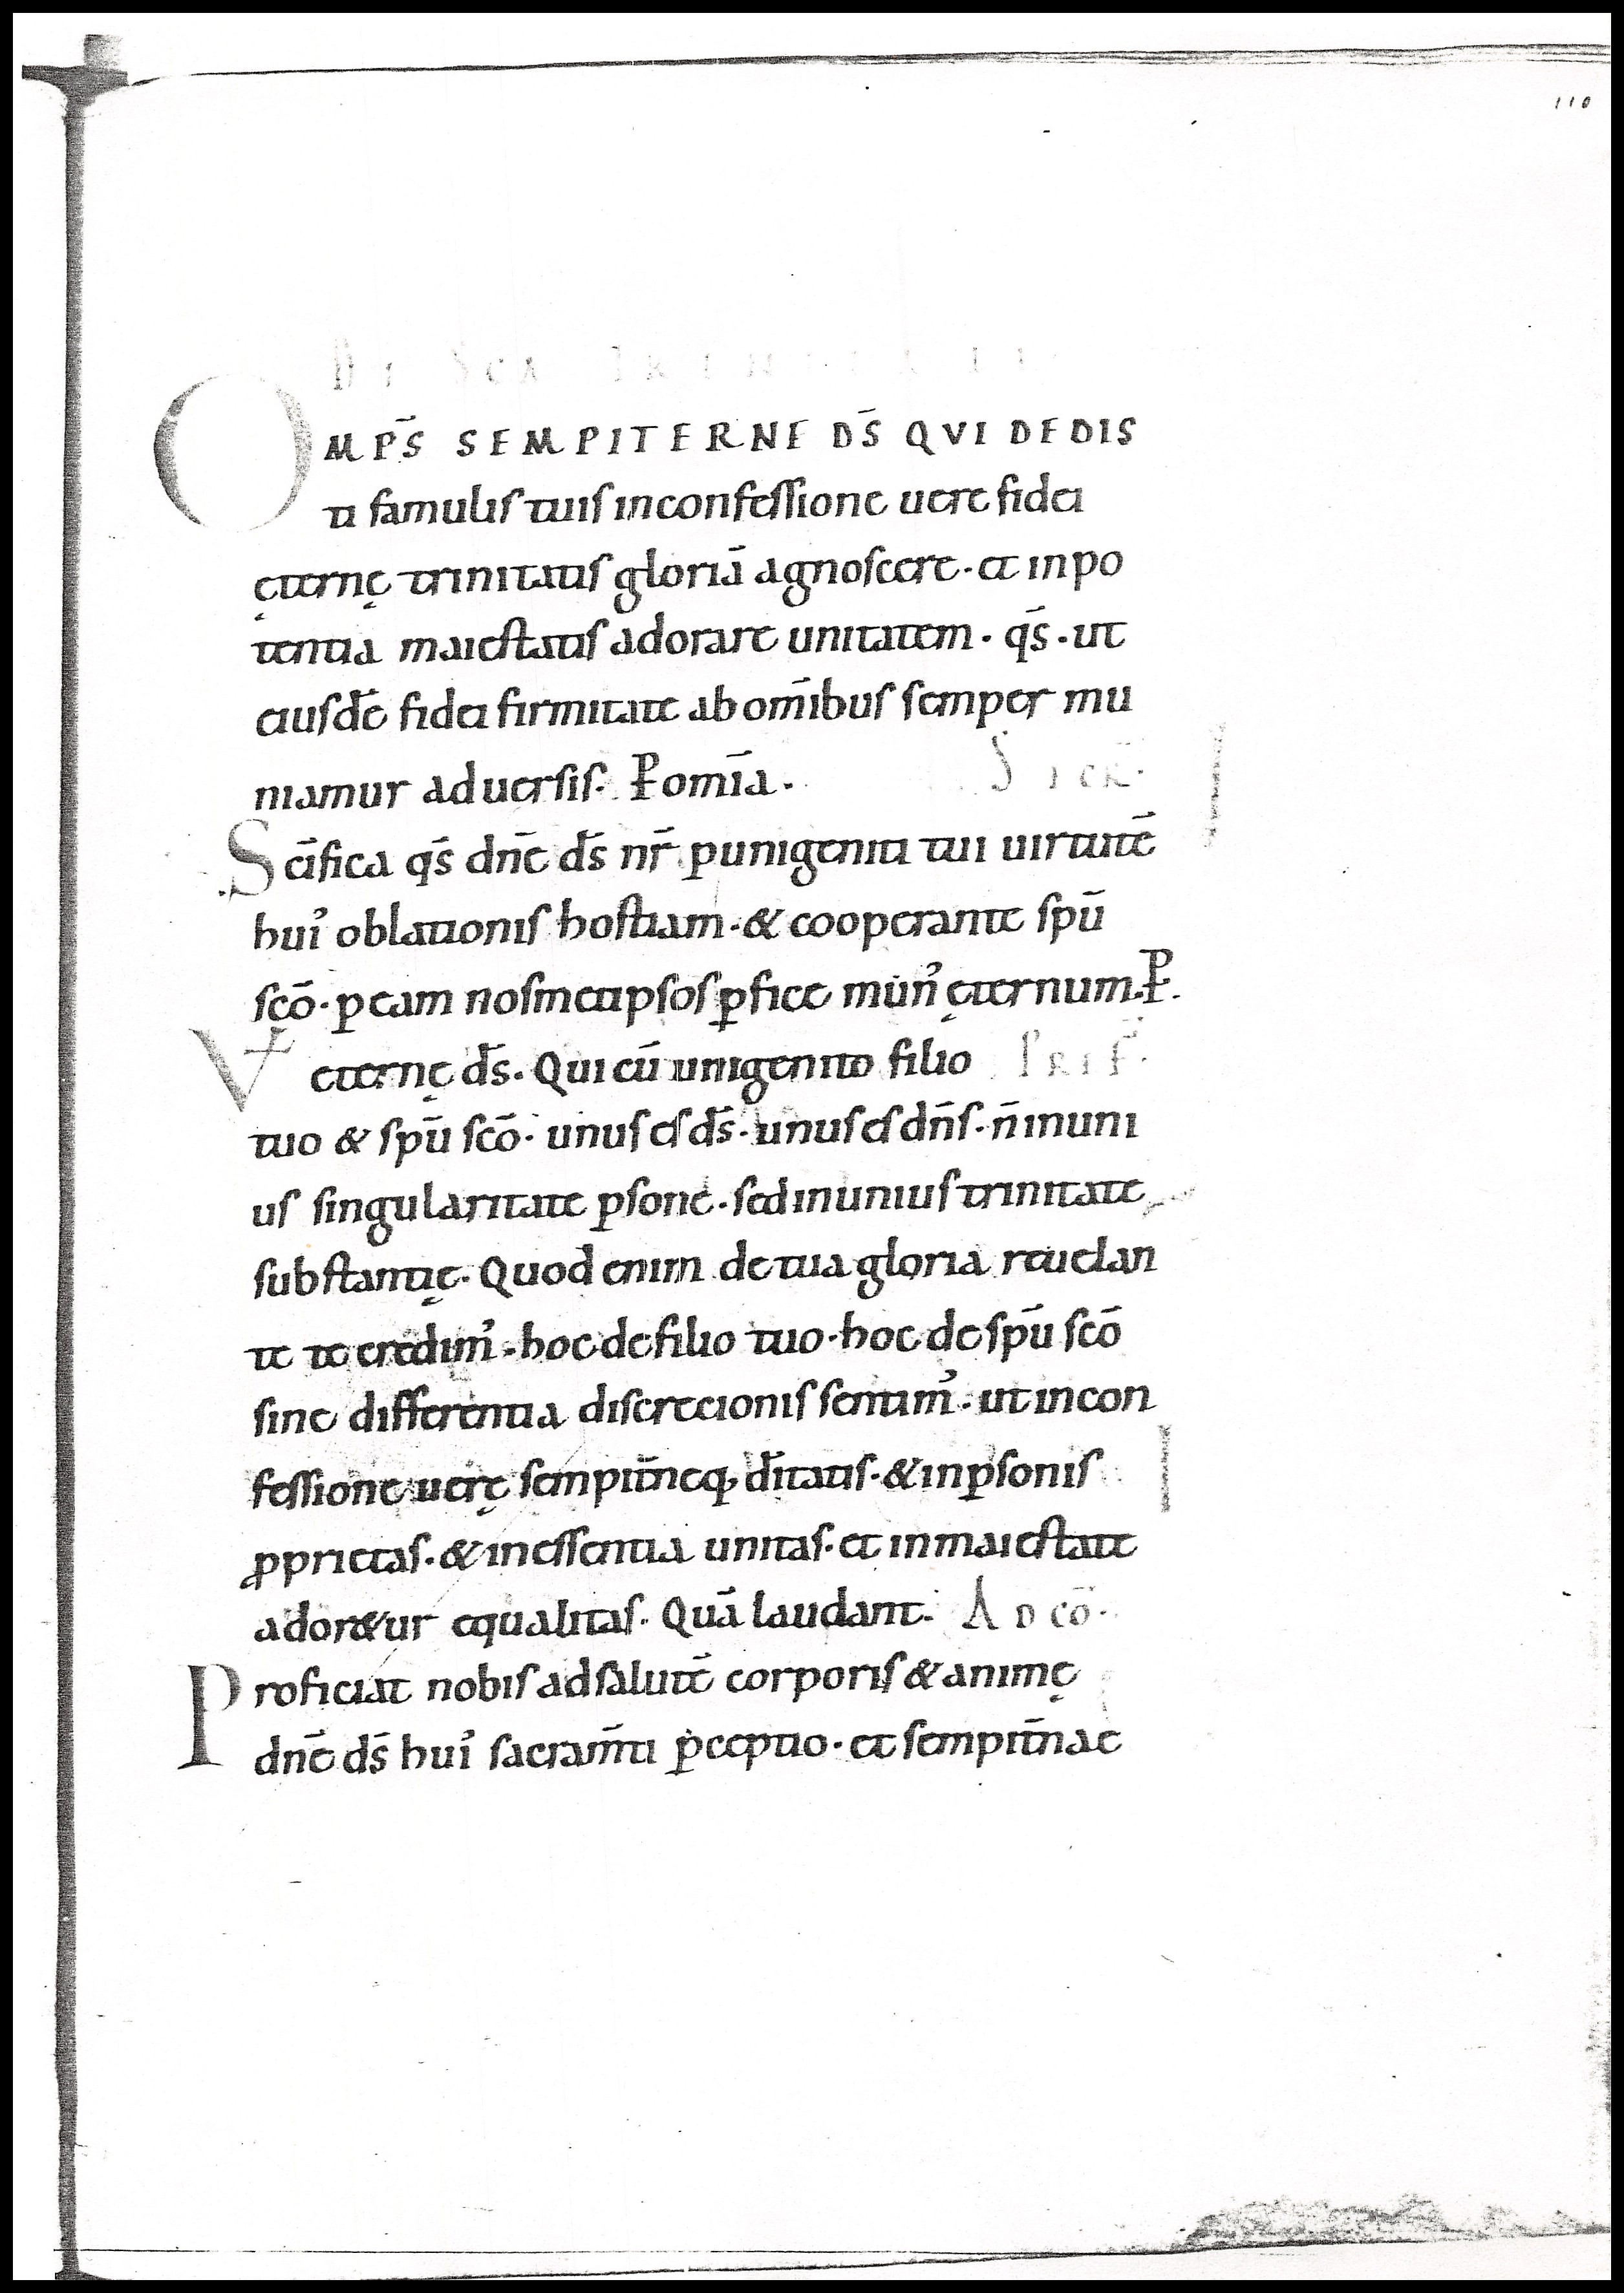 110
DE SCA TRINITATE
OMP̄S SEMPITERNE DS̄ QVI DEDIS
ti famulis tuis inconfessione uere fidei
ęternę trinitatis gloriā agnoscere · et inpo
tentia maiestatis adorare unitatem · qs̄ · ut
eiusdē fidei firmitate ab om̄ibus semper mu
niamur aduersis · P omīa ·
SECR̄ ·
Sc̄ifica qs̄ dn̄e ds̄ nr̄ punigeniti tui uirtutē
hui᾽ oblationis hostiam · & cooperante spū
scō · p eam nosmetipsos pfice mun᾽ ęternum · P ·
V ęternę ds̄ · Qui cū unigenito filio
PREF̄ ·
tuo & spū scō · unus es ds̄ · unus es dn̄s · n̄ inuni
us singularitate psone · sed inunius trinitate
substantię · Quod enim detua gloria reuelan
te te credim᾽ · hoc defilio tuo · hoc de spū scō
sine differentia discrecionis sentim᾽ · ut incon
fessione uerę sempit̄neq; dītatis · & inpsonis
pprietas · & inessentia unitas · et inmaiestate
ador&ur equalitas · Quā laudant · AD CŌ ·
Proficiat nobis adsalutē corporis & animę
dn̄e ds̄ hui᾽ sacram̄ti pceptio · et sempit̄nae